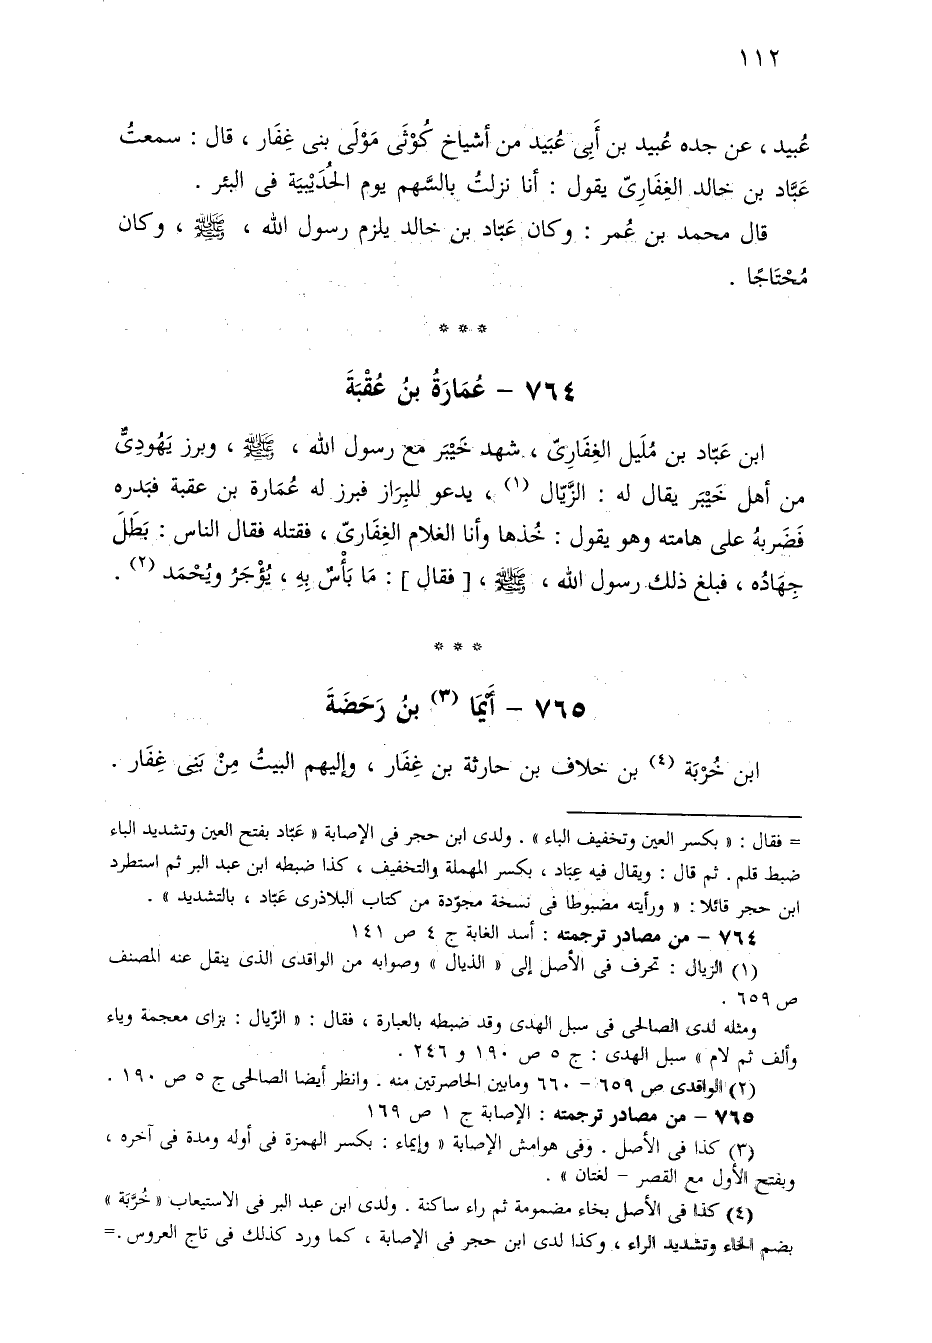 ١١٢
عُبيد ، عن جده عُبيد بن أَبِى عُبَيد من أشياخ كُوْثَى مَوْلَى بنى غِفَار ، قال : سمعتُ
عَبَّاد بن خالد الغِفَارِىّ يقول : أنا نزلتُ بالسَّهم يوم الحُدَيْبِيَة فى البئر .
قال محمد بن عُمر : وكان عَبّاد بن خالد يلزم رسول الله ، ﷺ ، وكان
مُحْتَاجًا .
* * *
٧٦٤ – عُمَارَةُ بنُ عُقْبَةَ
ابن عَبّاد بن مُلَيل الغِفَارِىّ ، شهد خَيْبَر مع رسول الله ، ﷺ ، وبرز يَهُودِىٌّ
من أهل خَيْبَر يقال له : الزَّيّال (١) ، يدعو للبِرَاز فبرز له عُمَارة بن عقبة فبَدره
فَضَربهُ على هامته وهو يقول : خُذها وأنا الغلام الغِفَارىّ ، فقتله فقال الناس : بَطَلَ
جِهَادُه ، فبلغ ذلك رسول الله ، ﷺ ، [ فقال ] : مَا بَأْسٌ بِهِ ، يُؤْجَرُ ويُحْمَد (٢) .
* * *
٧٦٥ – أَيْمَا (٣) بنُ رَحَضَةَ
ابن خُرْبَة (٤) بن خلاف بن حارثة بن غِفَار ، وإليهم البيتُ مِنْ بَنِى غِفَار .
= فقال : « بكسر العين وتخفيف الباء » . ولدى ابن حجر فى الإصابة « عَبّاد بفتح العين وتشديد الباء
ضبط قلم . ثم قال : ويقال فيه عِبَاد ، بكسر المهملة والتخفيف ، كذا ضبطه ابن عبد البر ثم استطرد
ابن حجر قائلا : « ورأيته مضبوطا فى نسخة مجوّدة من كتاب البلاذرى عَبّاد ، بالتشديد » .
٧٦٤ – من مصادر ترجمته : أسد الغابة ج ٤ ص ١٤١
(١) الزيال : تحرف فى الأصل إلى « الذيال » وصوابه من الواقدى الذى ينقل عنه المصنف
ص ٦٥٩ .
ومثله لدى الصالحى فى سبل الهدى وقد ضبطه بالعبارة ، فقال : « الزّيال : بزاى معجمة وياء
وألف ثم لام » سبل الهدى : ج ٥ ص ١٩٠ و ٢٤٦ .
(٢) الواقدى ص ٦٥٩ – ٦٦٠ ومابين الحاصرتين منه . وانظر أيضا الصالحى ج ٥ ص ١٩٠ .
٧٦٥ – من مصادر ترجمته : الإصابة ج ١ ص ١٦٩
(٣) كذا فى الأصل . وفى هوامش الإصابة « وإيماء : بكسر الهمزة فى أوله ومدة فى آخره ،
وبفتح الأول مع القصر – لغتان » .
(٤) كذا فى الأصل بخاء مضمومة ثم راء ساكنة . ولدى ابن عبد البر فى الاستيعاب « خُرَّبَة »
بضم الخاء وتشديد الراء ، وكذا لدى ابن حجر فى الإصابة ، كما ورد كذلك فى تاج العروس .=